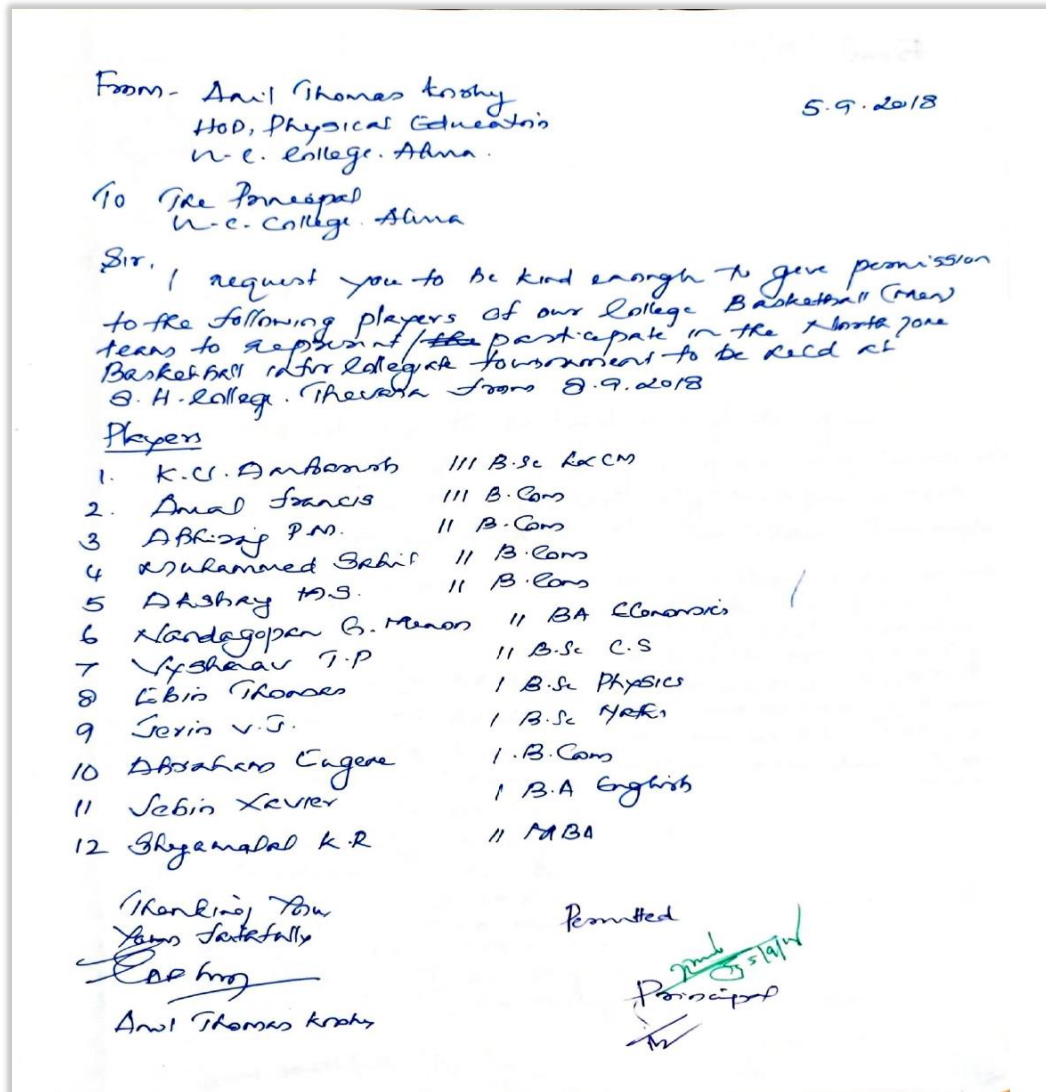 From- Anil Thomas Koshy
5.9.2018
HOD, Physical Education
U.C. College. Aluva.
To The Principal
U.C. College. Aluva
Sir,
I request you to be kind enough to give permission
to the following players of our College Basketball (Men)
team to represent / the participate in the North Zone
Basketball inter Collegiate tournament to be held at
S.H. College. Thevara from 8.9.2018
Players
1. K.U. III B.Sc
2. Amal Francis III B.Com
3 Abhiraj P.M. II B.Com
4 Muhammed II B.Com
5 Akshay M.S. II B.Com
6 Nandagopan G. Menon II BA Economics
7 Vyshnav T.P II B.Sc C.S
8 Ebin Thomas I B.Sc Physics
9 Jerin V.J. I B.Sc
10 Abraham Eugene I.B.Com
11 Jebin Xavier I B.A English
12 Shyamalal K.R II MBA
Thanking You
Yours faithfully
Anil Thomas Koshy
Permitted
5/9/18
Principal